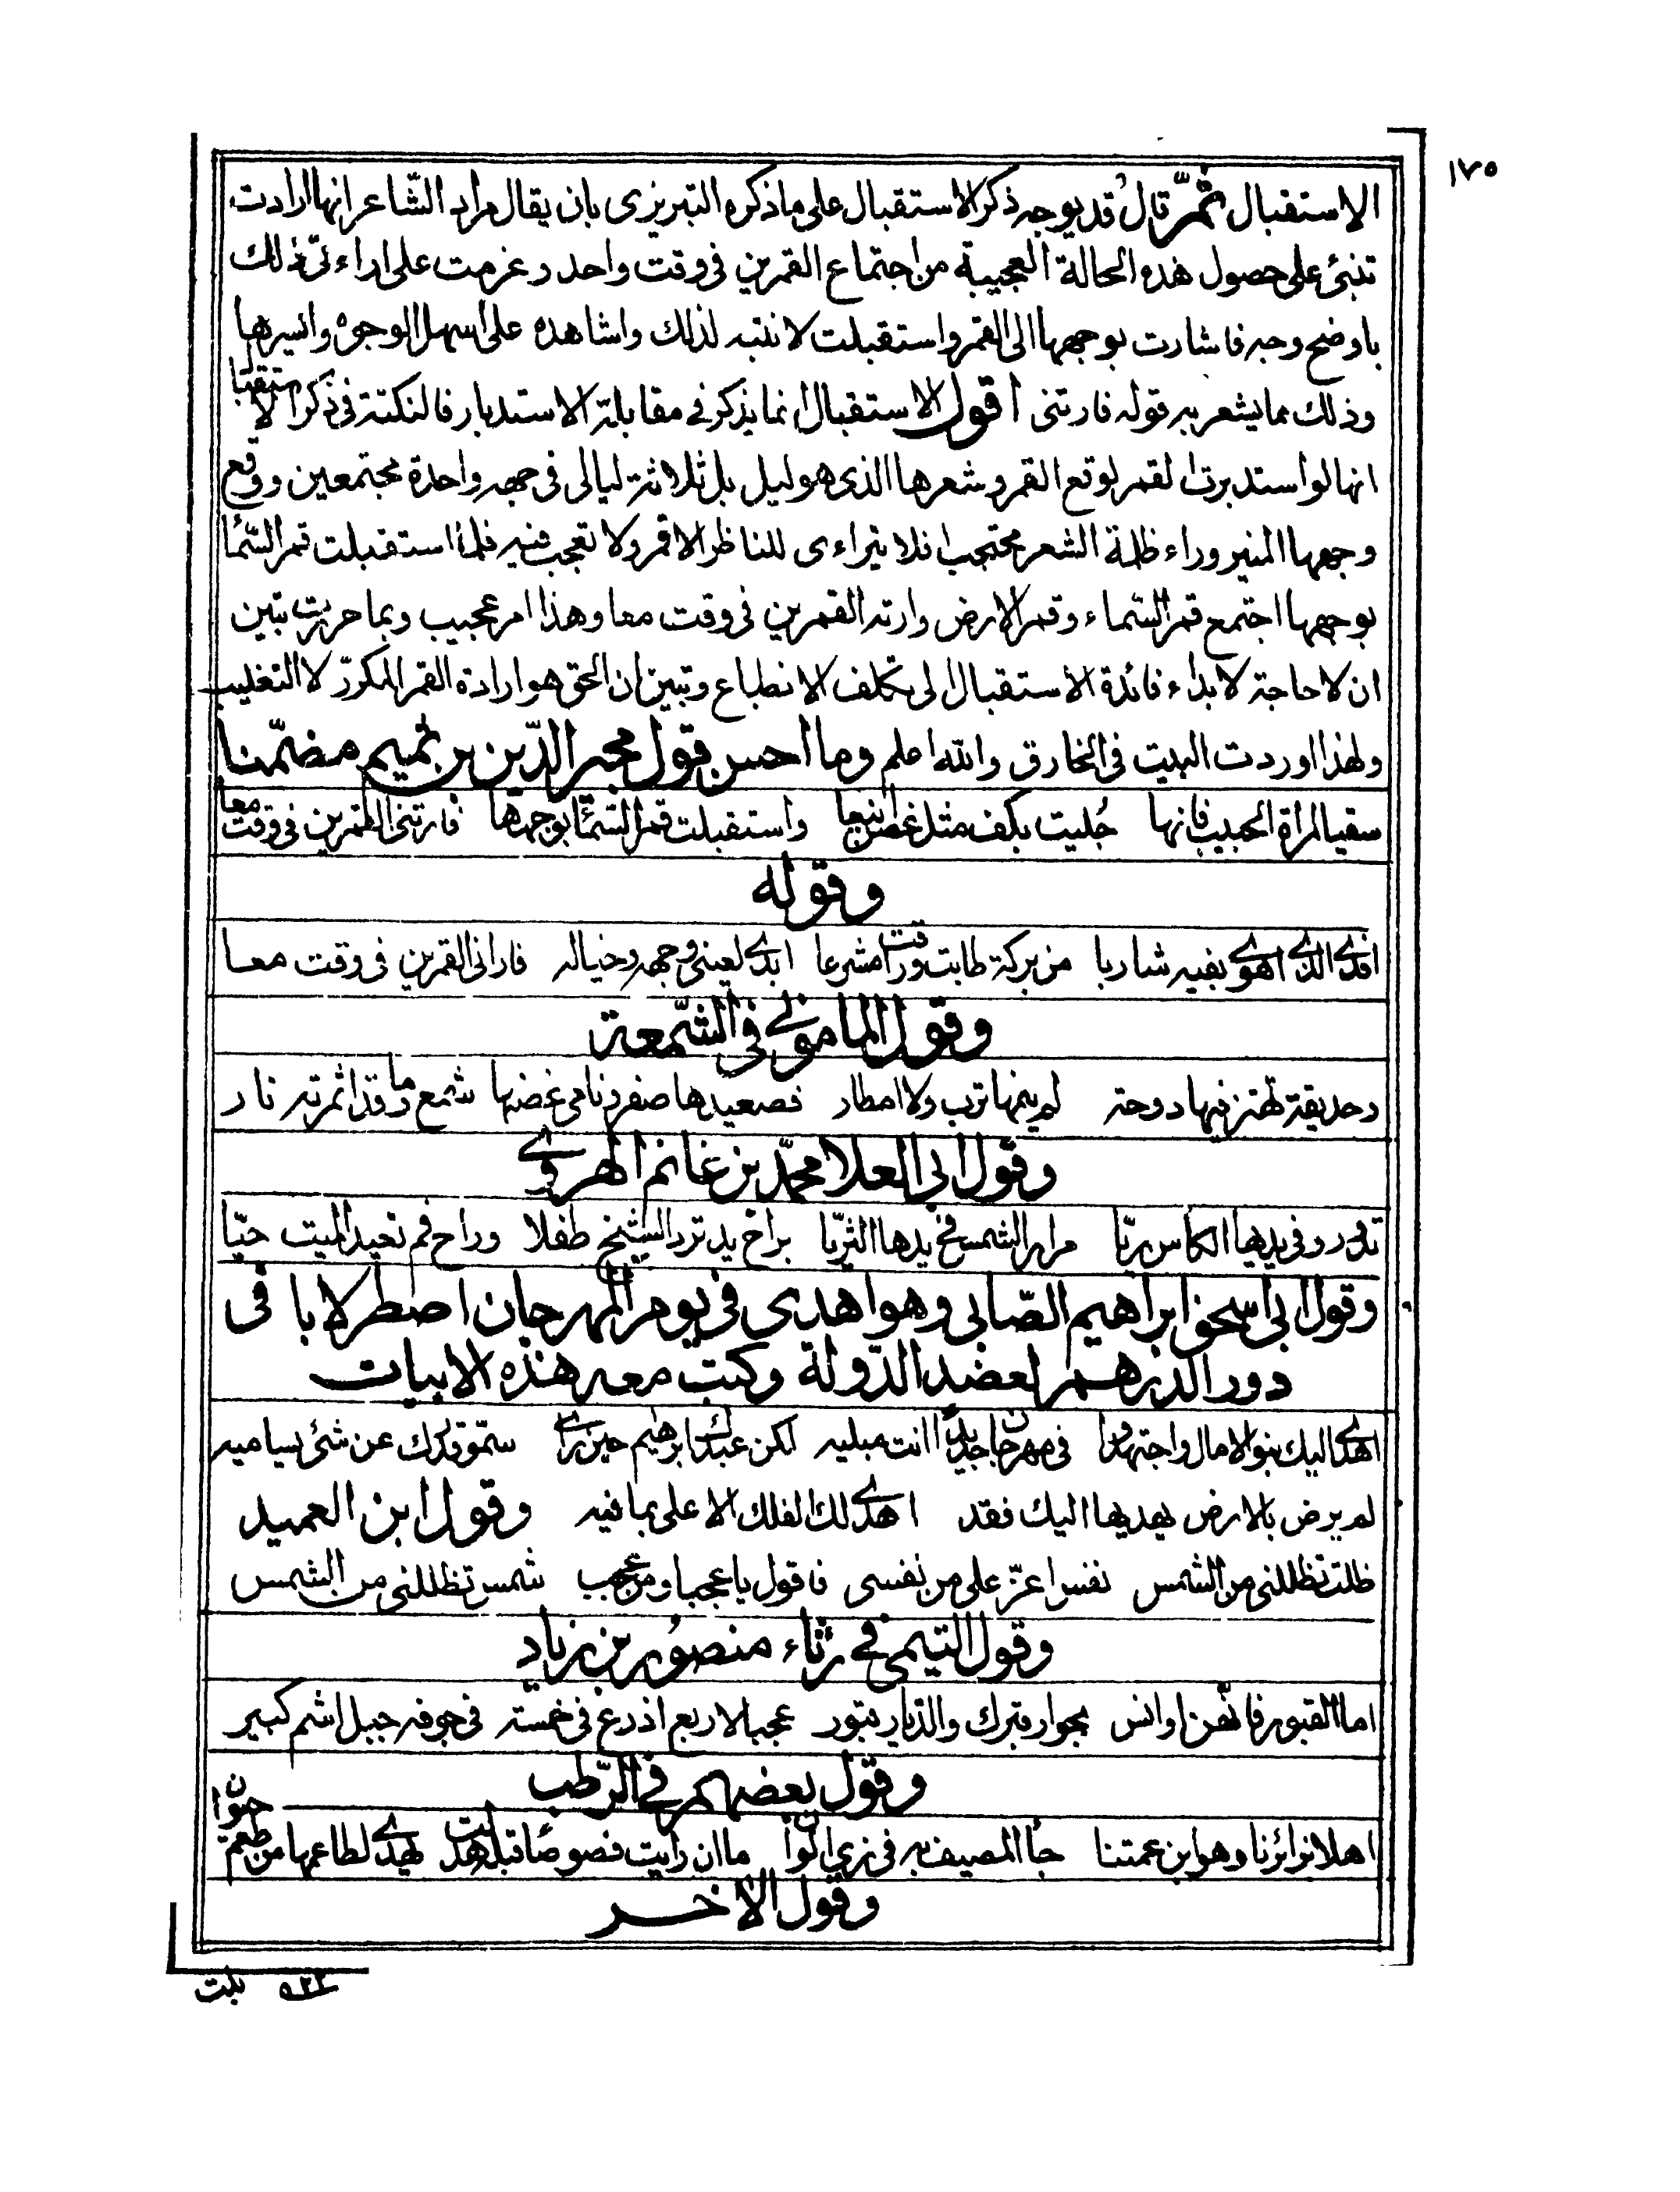 ١٧٥
الاستقبال ثمّ قال قد يوجه ذكر الاستقبال على ما ذكره التبريزى بان يقال مراد الشّاعر انها ارادت
تنبئ على حصول هذه الحالة العجيبة من اجتماع القمرين فى وقت واحد وعزمت على اراءتى ذلك
باوضح وجه فاشارت بوجهها الى القمر واستقبلت لانتبه لذلك واشاهده على اسهل الوجوه وايسرها
وذلك مما يشعر به قوله فارتنى اقول الاستقبال انما يذكر فى مقابلة الاستدبار فالنكتة فى ذكر الاستقبال
انها لو استدبرت القمر لوقع القمر وشعرها الذى هو ليل بل ثلاثة ليالى فى جهه واحدة مجتمعين ووقع
وجهها المنير وراء ظلمة الشعر محتجبا فلا يتراءى للناظر الا قمر ولا تعجب فيه فلما استقبلت قمر السّما
بوجهها اجتمع قمر السّماء وقمر الارض وارته القمرين فى وقت معا وهذا امر عجيب وبما حررت تبين
ان لا حاجة لابداء فائدة الاستقبال الى تكلف الانطباع وتبين ان الحق هو ارادة القمر المكرّر لا التغليب
ولهذا اوردت البيت فى الخارق والله اعلم وما احسن قول مجير الدّين بن تميم مضمّنا
سقيا لمراة الحبيب فانها جُليت بكف مثل غصن اينعا واستقبلت قمر السّما بوجهها فارتنى القمرين فى وقت معا
وقوله
افدى الذى اهوى بفيه شاربا من بركة طابت وراقت مشرعا ابدى لعينى وجهه وخياله فارانى القمرين فى وقت معا
وقول المامونى فى الشّمعة
وحديقة تهتز فيها دوحة لم ينمها ترب ولا امطار فصعيدها صفر ونامى غصنها شمع وما قد اثمرته نار
وقول ابى العلا محمّد بن غانم الهروى
تدور وفى يديها الكاس ريّا مرار الشمس فى يدها الثريّا براح يد ترد الشيخ طفلا وراح فم تعيد الميت حيّا
وقول ابى اسحق ابراهيم الصّابى وهو اهدى فى يوم المهرجان اصطرلابا فى
دور الدرهم لعضد الدّولة وكتب معه هذه الابيات
اهدى اليك بنو الامال واجتهدوا فى مهرجان جديد انت مبليه لكن عبدك ابرهيم حين راى سموّ قدرك عن شئ يساميه
لم يرض بالارض يهديها اليك فقد اهدى لك الفلك الاعلى بما فيه وقول ابن العميد
ظلت تظللنى من الشمس نفس اعزّ على من نفسى فاقول يا عجبا ومن عجب شمس تظللنى من الشمس
وقول التيمى فى رثاء منصور بن زياد
اما القبور فانهّن اوانس بجوار قبرك والديار قبور عجبا لاربع اذرع فى خمسة فى جوفه جبل اشم كبير
وقول بعضهم فى الرّطب
اهلا بزائرنا وهو ابن عمتنا جاء المصيف به فى زى الوان ما ان رايت فصوصا قبلها بدت تهدى لطاعمها من طعم حلوان
وقول الاخر
٥٢٢ بلت